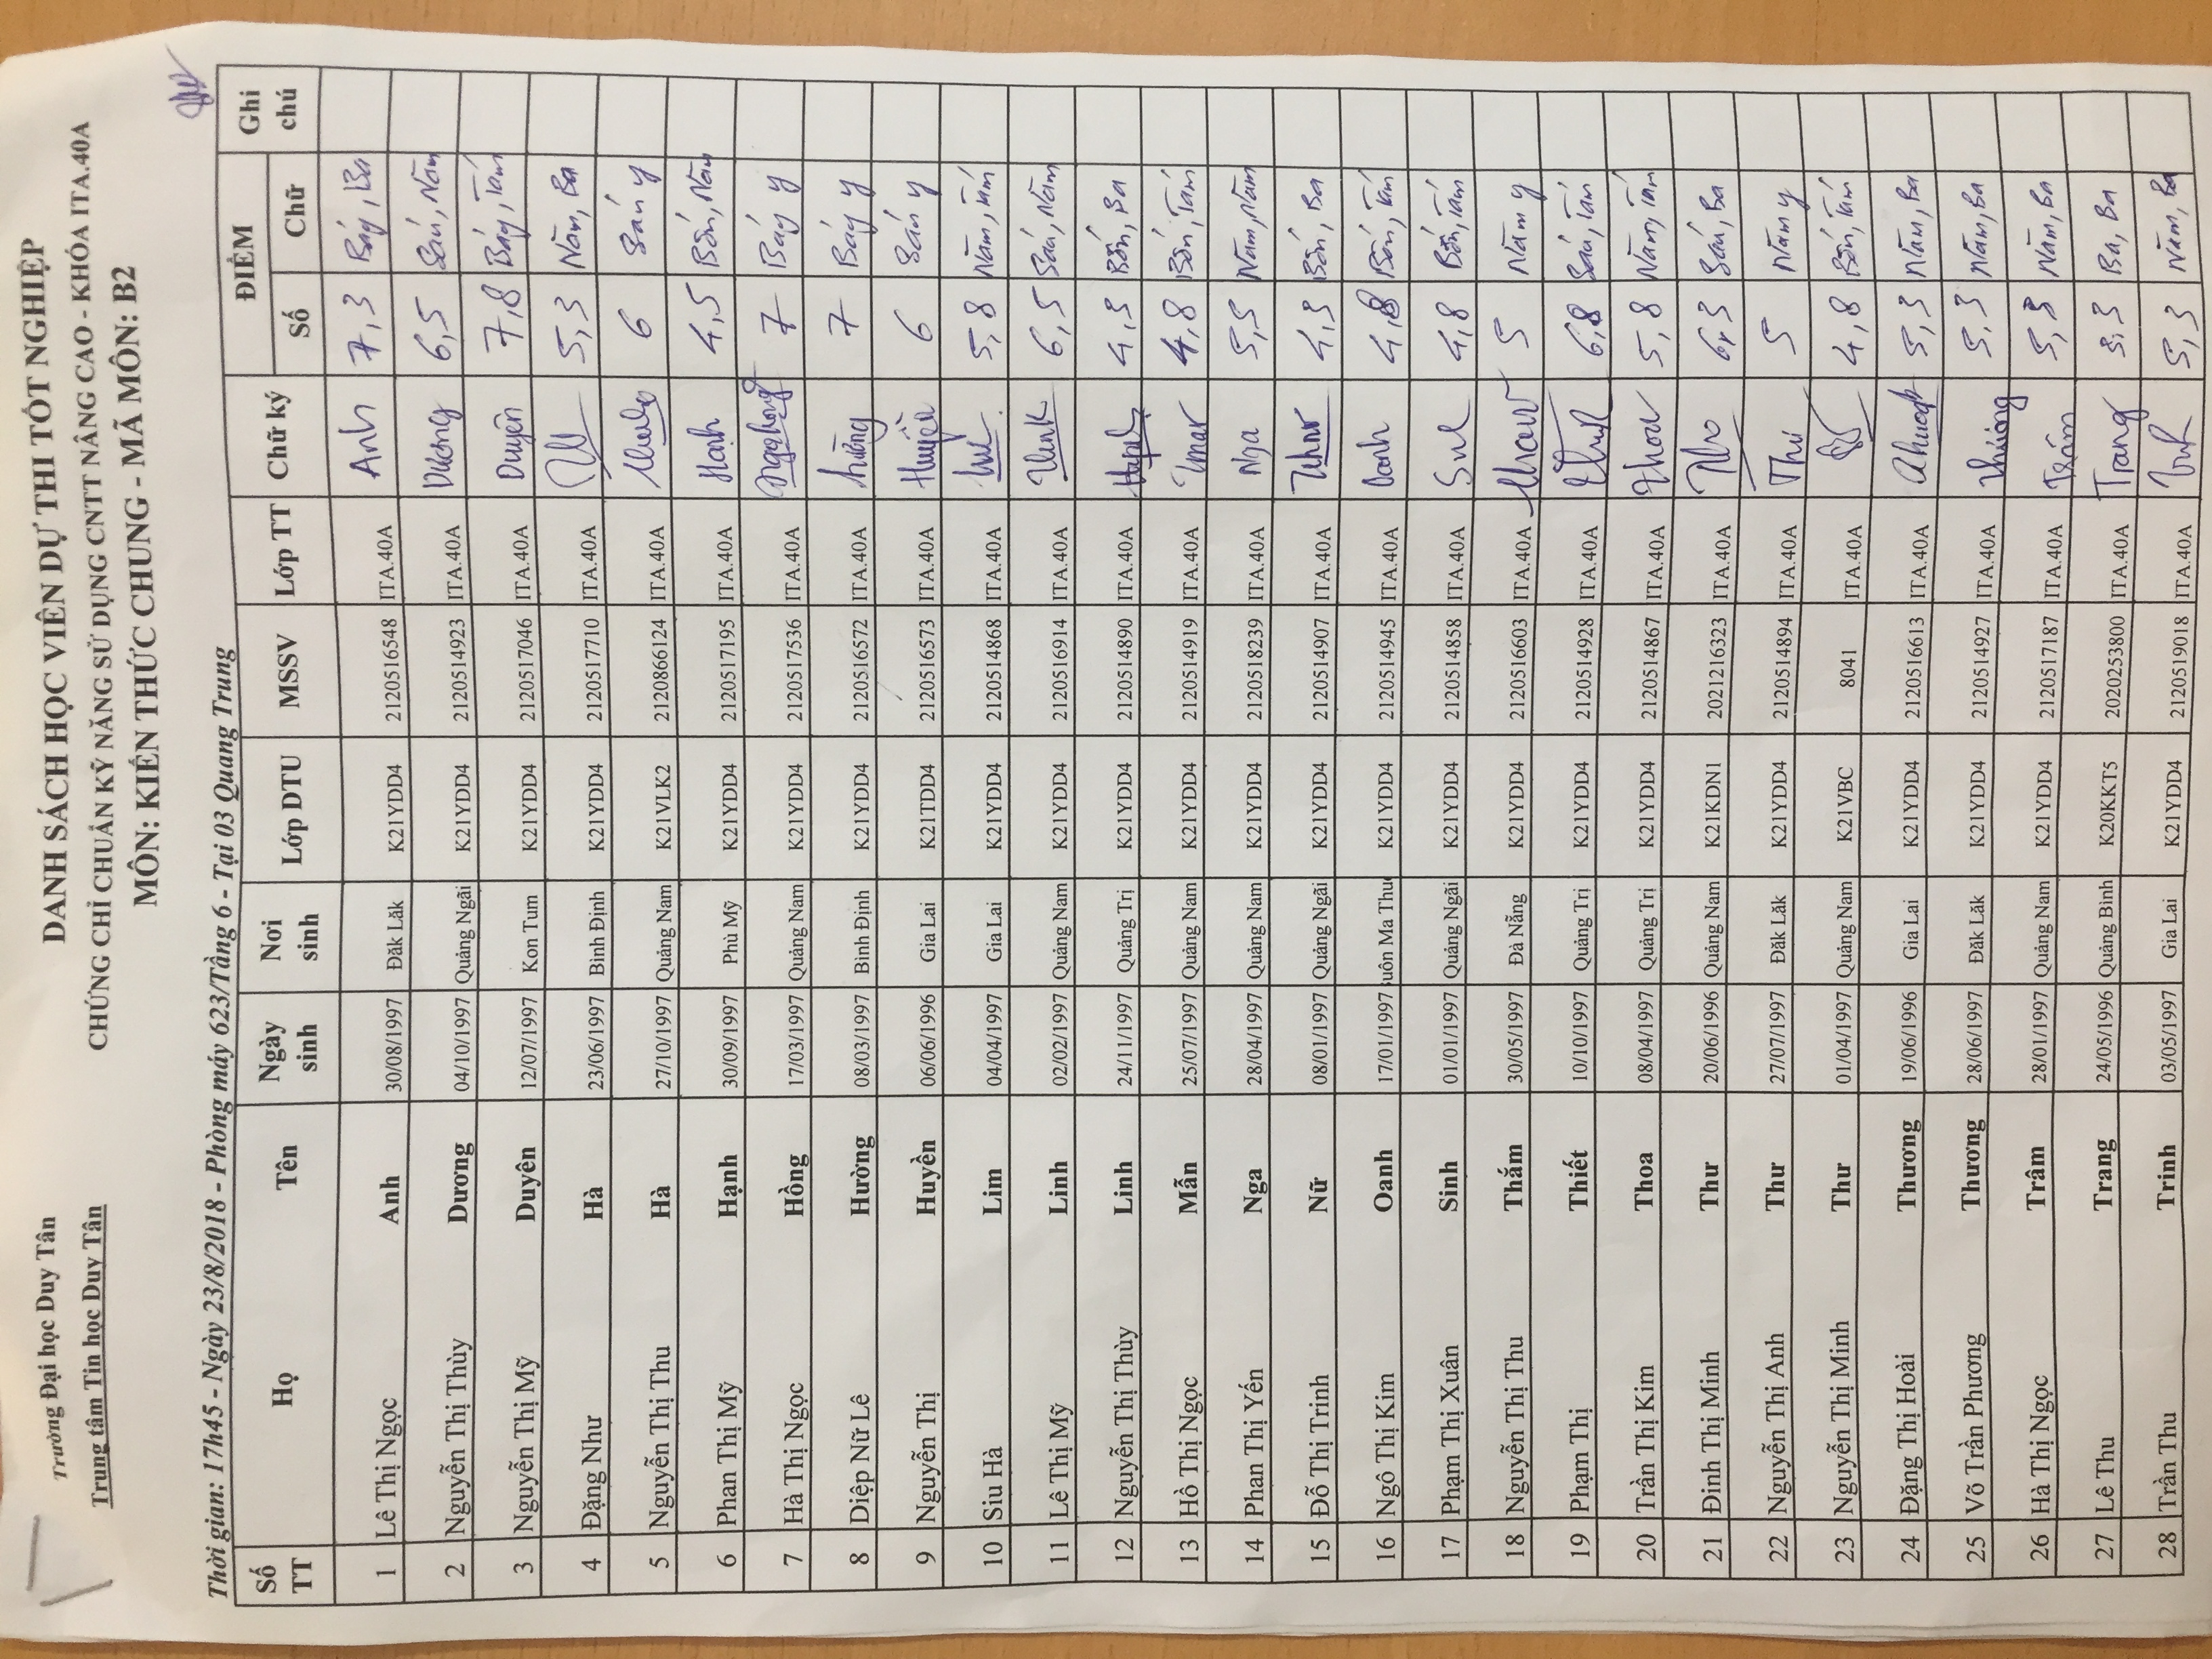 Trường Đại học Duy Tân
Trung tâm Tin học Duy Tân
DANH SÁCH HỌC VIÊN DỰ THI TỐT NGHIỆP
CHỨNG CHỈ CHUẨN KỸ NĂNG SỬ DỤNG CNTT NÂNG CAO - KHÓA ITA.40A
MÔN: KIẾN THỨC CHUNG - MÃ MÔN: B2
Thời gian: 17h45 - Ngày 23/8/2018 - Phòng máy 623/Tầng 6 - Tại 03 Quang Trung
Số TT Họ Tên Ngày sinh Nơi sinh Lớp DTU MSSV Lớp TT Chữ ký ĐIỂM Số Chữ Ghi chú
1 Lê Thị Ngọc Anh 30/08/1997 Đăk Lăk K21YDD4 2120516548 ITA.40A Anh 7,3 Bảy, Ba
2 Nguyễn Thị Thùy Dương 04/10/1997 Quảng Ngãi K21YDD4 2120514923 ITA.40A Dương 6,5 Sáu, Năm
3 Nguyễn Thị Mỹ Duyên 12/07/1997 Kon Tum K21YDD4 2120517046 ITA.40A Duyên 7,8 Bảy, Tám
4 Đặng Như Hà 23/06/1997 Bình Định K21YDD4 2120517710 ITA.40A 5,3 Năm, Ba
5 Nguyễn Thị Thu Hà 27/10/1997 Quảng Nam K21VLK2 2120866124 ITA.40A 6 Sáu y
6 Phan Thị Mỹ Hạnh 30/09/1997 Phù Mỹ K21YDD4 2120517195 ITA.40A Hạnh 4,5 Bốn, Năm
7 Hà Thị Ngọc Hồng 17/03/1997 Quảng Nam K21YDD4 2120517536 ITA.40A 7 Bảy y
8 Diệp Nữ Lê Hường 08/03/1997 Bình Định K21YDD4 2120516572 ITA.40A Hường 7 Bảy y
9 Nguyễn Thị Huyền 06/06/1996 Gia Lai K21TDD4 2120516573 ITA.40A Huyền 6 Sáu y
10 Siu Hà Lim 04/04/1997 Gia Lai K21YDD4 2120514868 ITA.40A 5,8 Năm, Tám
11 Lê Thị Mỹ Linh 02/02/1997 Quảng Nam K21YDD4 2120516914 ITA.40A 6,5 Sáu, Năm
12 Nguyễn Thị Thùy Linh 24/11/1997 Quảng Trị K21YDD4 2120514890 ITA.40A 4,3 Bốn, Ba
13 Hồ Thị Ngọc Mẫn 25/07/1997 Quảng Nam K21YDD4 2120514919 ITA.40A 4,8 Bốn, Tám
14 Phan Thị Yến Nga 28/04/1997 Quảng Nam K21YDD4 2120518239 ITA.40A Nga 5,5 Năm, Năm
15 Đỗ Thị Trinh Nữ 08/01/1997 Quảng Ngãi K21YDD4 2120514907 ITA.40A 4,3 Bốn, Ba
16 Ngô Thị Kim Oanh 17/01/1997 uôn Ma Thu K21YDD4 2120514945 ITA.40A Oanh 4,8 Bốn, Tám
17 Phạm Thị Xuân Sinh 01/01/1997 Quảng Ngãi K21YDD4 2120514858 ITA.40A 4,8 Bốn, Tám
18 Nguyễn Thị Thu Thắm 30/05/1997 Đà Nẵng K21YDD4 2120516603 ITA.40A 5 Năm y
19 Phạm Thị Thiết 10/10/1997 Quảng Trị K21YDD4 2120514928 ITA.40A 6,8 Sáu, Tám
20 Trần Thị Kim Thoa 08/04/1997 Quảng Trị K21YDD4 2120514867 ITA.40A Thoa 5,8 Năm, Tám
21 Đinh Thị Minh Thư 20/06/1996 Quảng Nam K21KDN1 2021216323 ITA.40A 6,3 Sáu, Ba
22 Nguyễn Thị Anh Thư 27/07/1997 Đăk Lăk K21YDD4 2120514894 ITA.40A Thư 5 Năm y
23 Nguyễn Thị Minh Thư 01/04/1997 Quảng Nam K21VBC 8041 ITA.40A 4,8 Bốn, Tám
24 Đặng Thị Hoài Thương 19/06/1996 Gia Lai K21YDD4 2120516613 ITA.40A 5,3 Năm, Ba
25 Võ Trần Phương Thương 28/06/1997 Đăk Lăk K21YDD4 2120514927 ITA.40A Thương 5,3 Năm, Ba
26 Hà Thị Ngọc Trâm 28/01/1997 Quảng Nam K21YDD4 2120517187 ITA.40A Trâm 5,3 Năm, Ba
27 Lê Thu Trang 24/05/1996 Quảng Bình K20KKT5 2020253800 ITA.40A Trang 3,3 Ba, Ba
28 Trần Thu Trinh 03/05/1997 Gia Lai K21YDD4 2120519018 ITA.40A 5,3 Năm, Ba